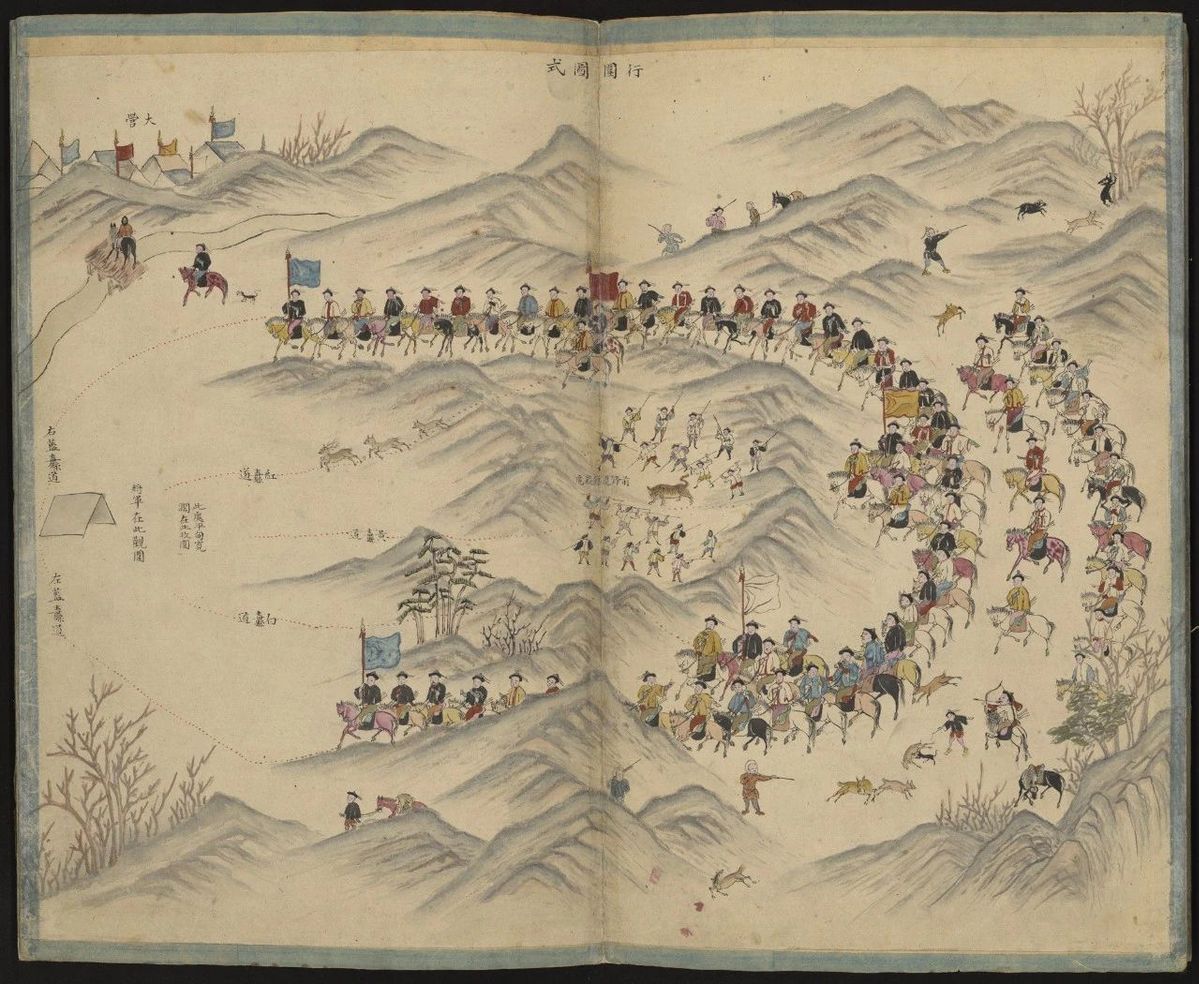 行圍圖式
大營
紅纛道
黃纛道
白纛道
此處平甸寬
濶在此收圍
將軍在此觀圍
右藍纛道
左藍纛道